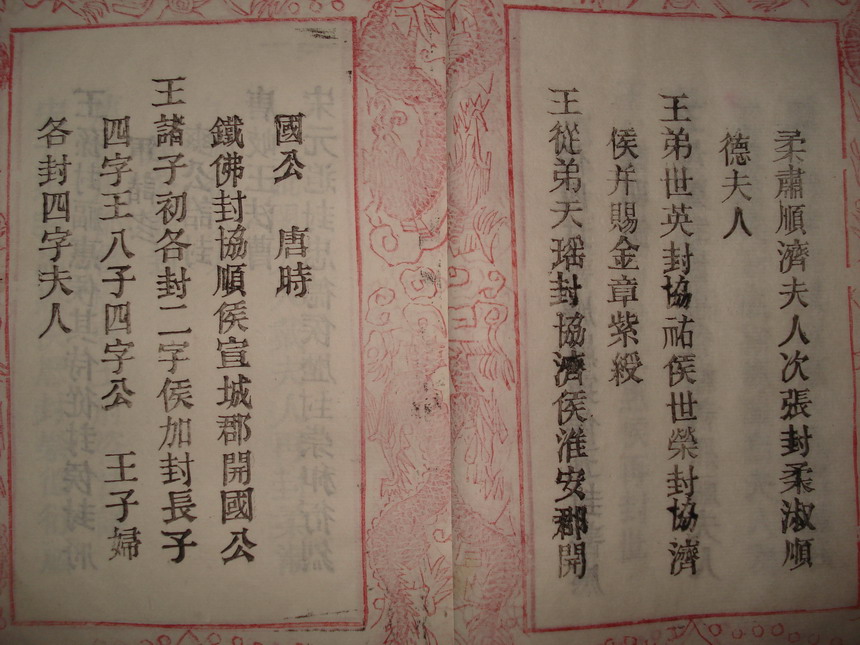 柔肅順濟夫人次張封柔淑順
德夫人
王弟世英封協祐侯世榮封協濟
侯并賜金章紫綬
王從弟天瑶封協濟侯淮安郡開
國公 唐時
鐵佛封協順侯宣城郡開國公
王諸子初各封二字侯加封長子
四字王八子四字公 王子婦
各封四字夫人